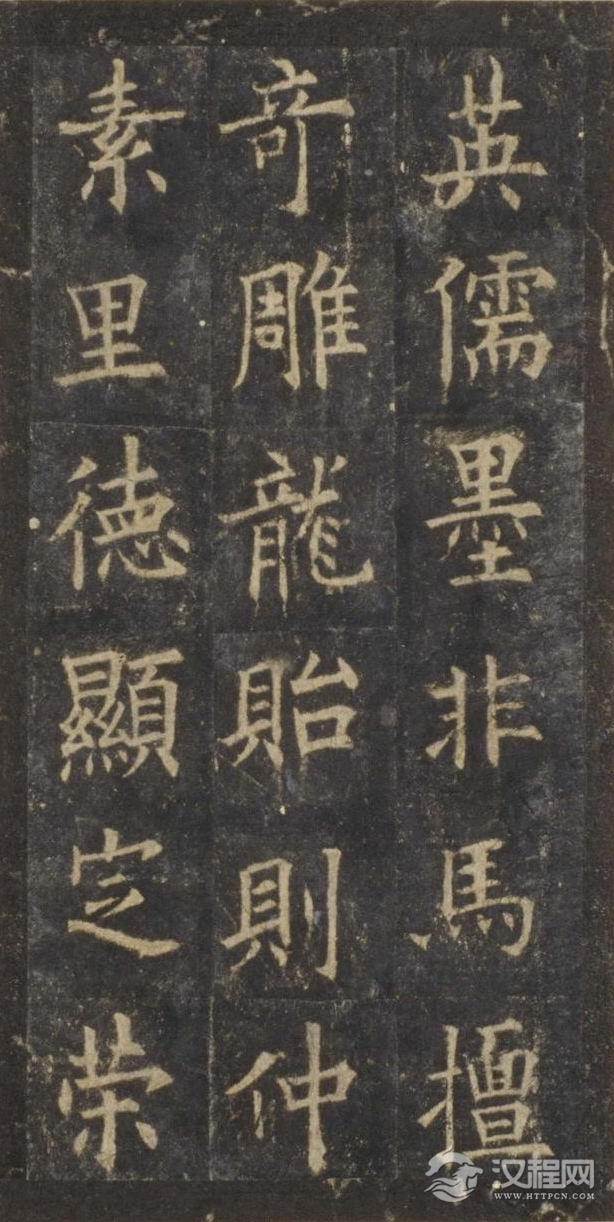 英儒墨非馬擅
奇雕龍貽則仲
素里德顯定荣
汉程网
WWW.HTTPCN.COM